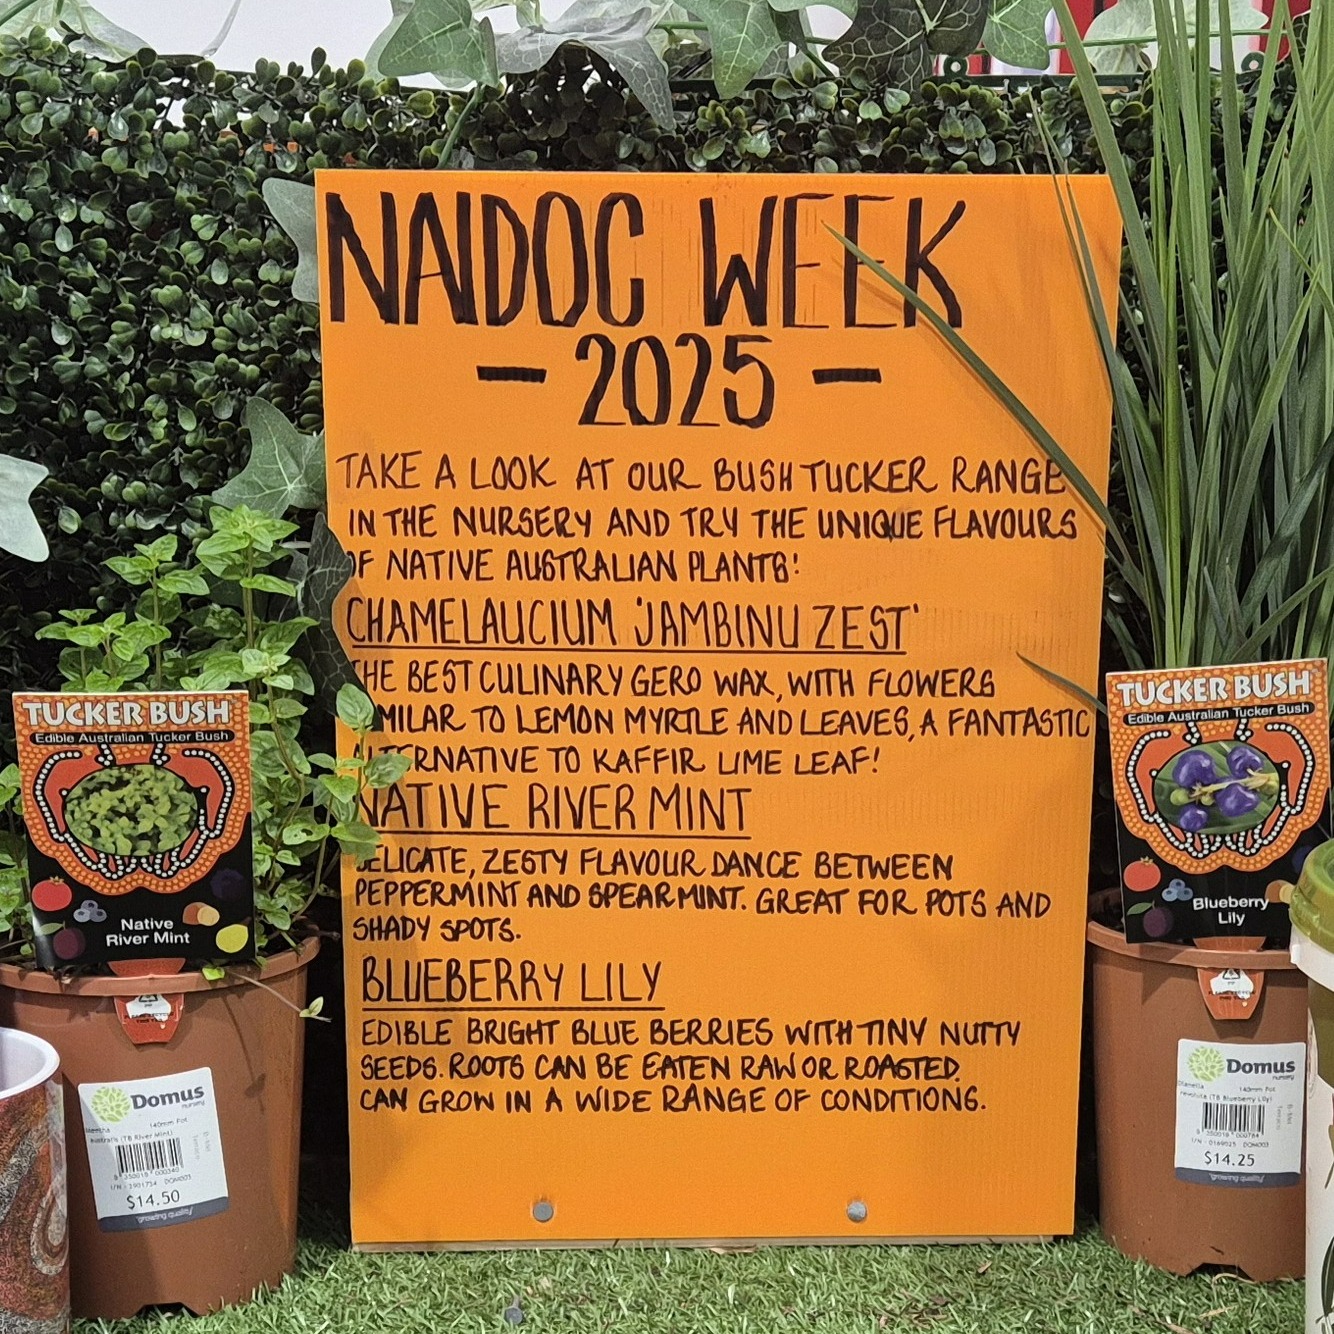 NAIDOC WEEK
- 2025 -
TAKE A LOOK AT OUR BUSH TUCKER RANGE
IN THE NURSERY AND TRY THE UNIQUE FLAVOURS
OF NATIVE AUSTRALIAN PLANTS:
CHAMELAUCIUM 'JAMBINU ZEST'
THE BEST CULINARY GERO WAX, WITH FLOWERS
SIMILAR TO LEMON MYRTLE AND LEAVES, A FANTASTIC
ALTERNATIVE TO KAFFIR LIME LEAF!
NATIVE RIVER MINT
DELICATE, ZESTY FLAVOUR DANCE BETWEEN
PEPPERMINT AND SPEARMINT. GREAT FOR POTS AND
SHADY SPOTS.
BLUEBERRY LILY
EDIBLE BRIGHT BLUE BERRIES WITH TINY NUTTY
SEEDS. ROOTS CAN BE EATEN RAW OR ROASTED.
CAN GROW IN A WIDE RANGE OF CONDITIONS.
TUCKER BUSH
Edible Australian Tucker Bush
Native
River Mint
Domus
nursery
140mm Pot
(TB River Mint)
$14.50
growing quality
TUCKER BUSH
Edible Australian Tucker Bush
Blueberry
Lily
Domus
nursery
140mm Pot
(TB Blueberry Lily)
$14.25
growing quality